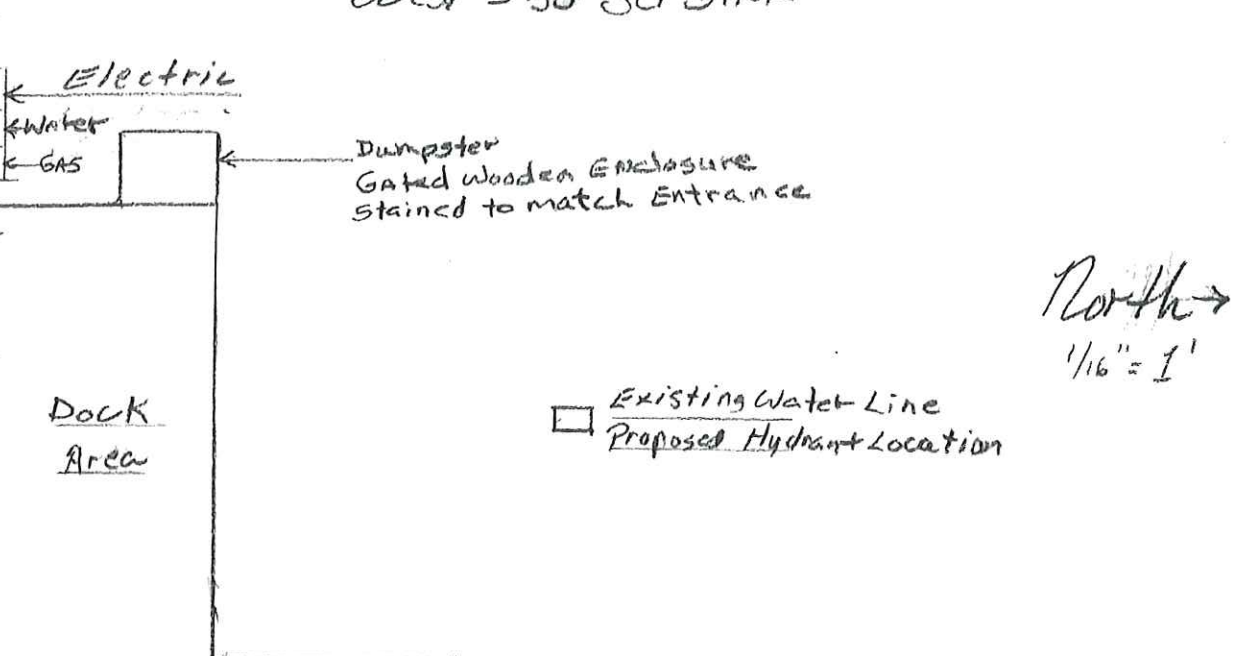 Electric
Water
GAS
Dumpster
Gated Wooden Enclosure
Stained to match Entrance
North
1/16" = 1'
Dock
Area
Existing Water Line
Proposed Hydrant Location